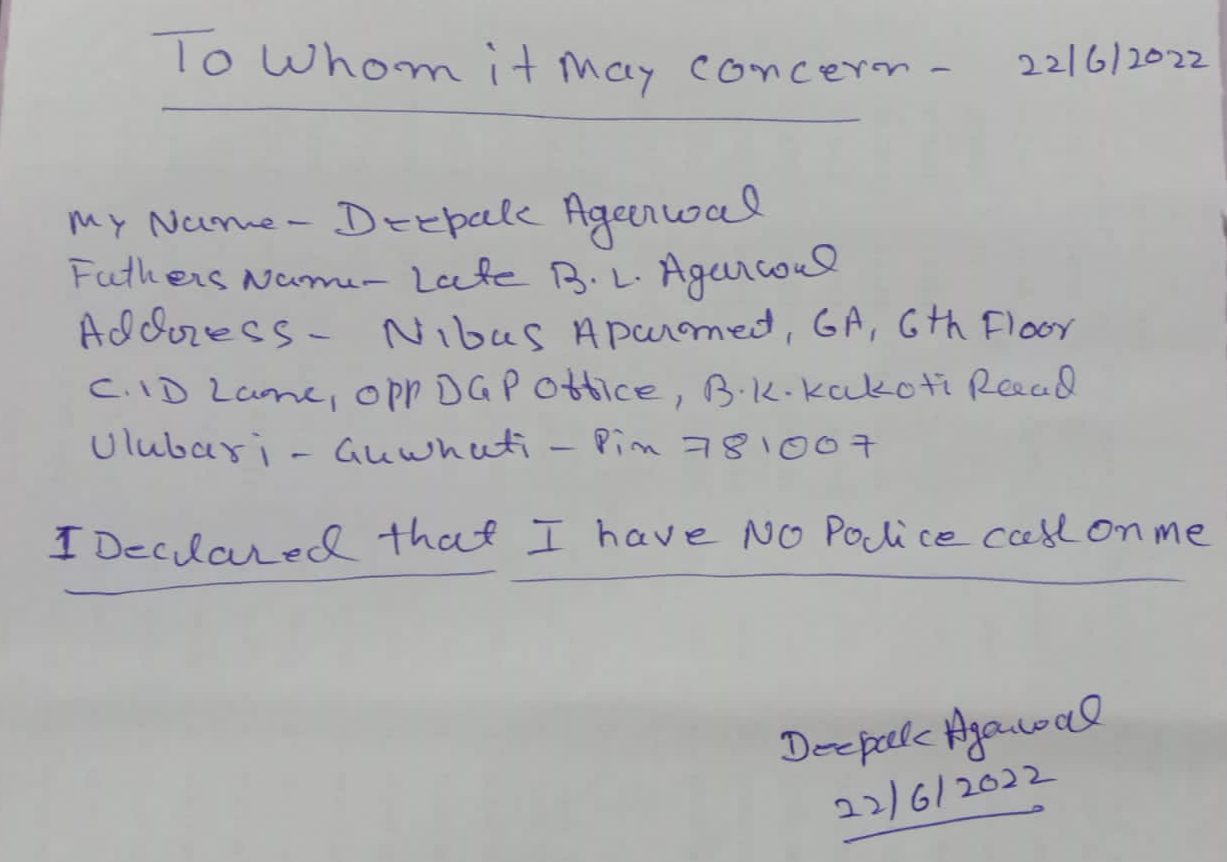 To Whom it May concern - 22/6/2022
My Name - Deepak Agarwal
Fathers Name - Late B. L. Agarwal
Address - Nibas Aparmet, 6A, 6th Floor
C.ID Lane, opp DGP Office, B.K. Kakoti Road
Ulubari - Guwhati - Pin 781007
I Declared that I have NO Police case on me
Deepak Agarwal
22/6/2022